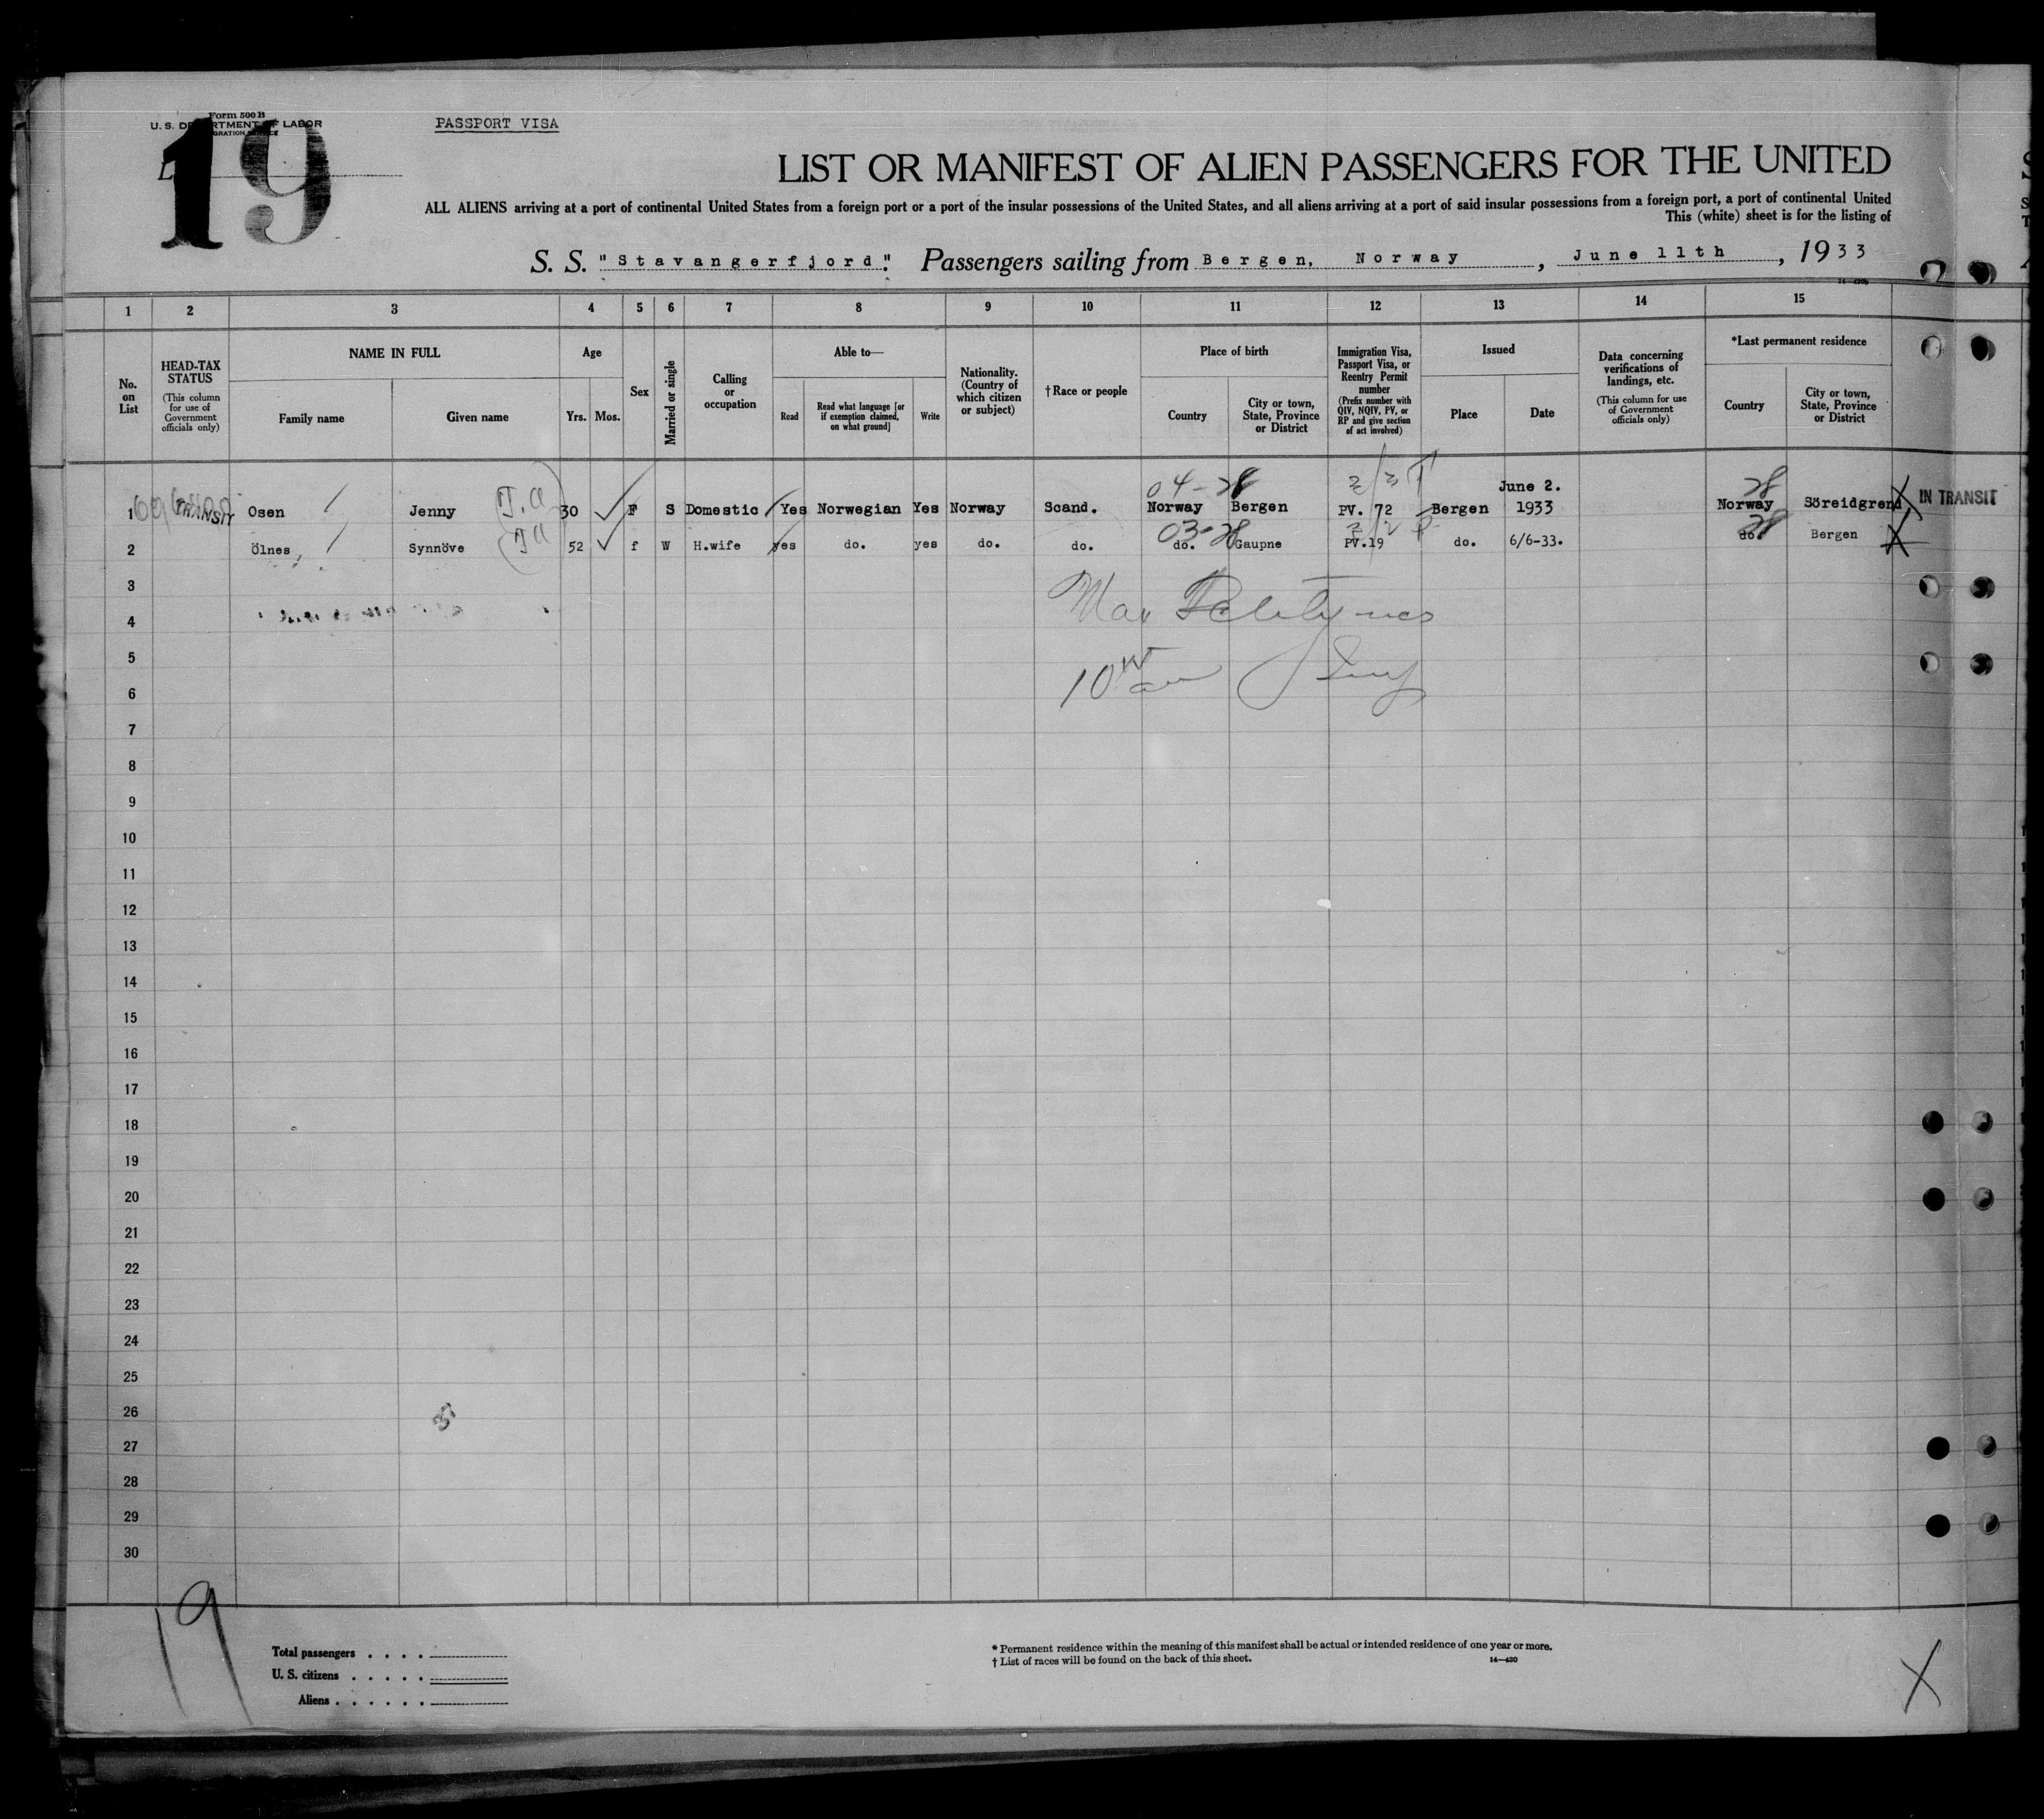 Form 500 B
U. S. DEPARTMENT OF LABOR
19
PASSPORT VISA
LIST OR MANIFEST OF ALIEN PASSENGERS FOR THE UNITED
ALL ALIENS arriving at a port of continental United States from a foreign port or a port of the insular possessions of the United States, and all aliens arriving at a port of said insular possessions from a foreign port, a port of continental United
This (white) sheet is for the listing of
S. S. "Stavangerfjord". Passengers sailing from Bergen, Norway, June 11th, 1933
1 2 3 4 5 6 7 8 9 10 11 12 13 14 15
No. on List
HEAD-TAX STATUS (This column for use of Government officials only)
NAME IN FULL
Family name
Given name
Age
Yrs. Mos.
Sex
Married or single
Calling or occupation
Able to—
Read
Read what language [or if exemption claimed, on what ground]
Write
Nationality. (Country of which citizen or subject)
† Race or people
Place of birth
Country
City or town, State, Province or District
Immigration Visa, Passport Visa, or Reentry Permit number (Prefix number with QIV, NQIV, PV, or RP and give section of act involved)
Issued
Place
Date
Data concerning verifications of landings, etc. (This column for use of Government officials only)
*Last permanent residence
Country
City or town, State, Province or District
04-28 3/3 T June 2. 28
1 TRANSIT Osen Jenny T.A 30 F S Domestic Yes Norwegian Yes Norway Scand. Norway Bergen PV. 72 Bergen 1933 Norway Söreidgrend X IN TRANSIT
03-28 28
2 Ölnes, Synnöve TA 52 f W H.wife yes do. yes do. do. do. Gaupne PV.19 do. 6/6-33. do. Bergen X
3
4
5
6
7
8
9
10
11
12
13
14
15
16
17
18
19
20
21
22
23
24
25
26
27
28
29
30
19
Total passengers . . . .
U. S. citizens . . . . .
Aliens . . . . . .
* Permanent residence within the meaning of this manifest shall be actual or intended residence of one year or more.
† List of races will be found on the back of this sheet. 14—430
X